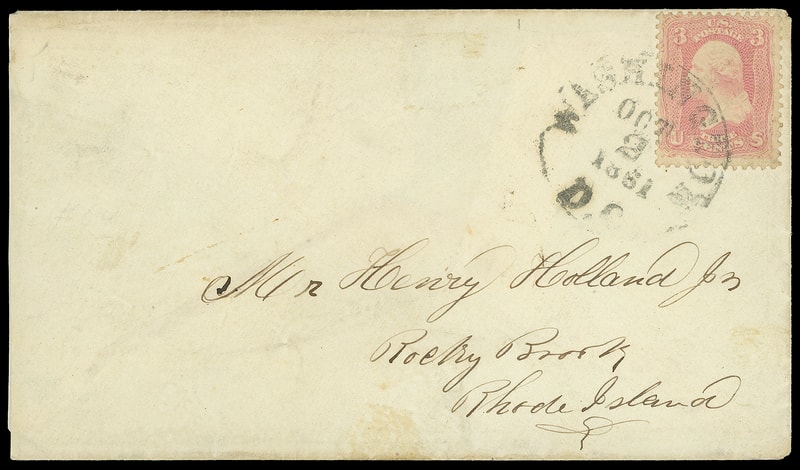 3 U.S. 3
POSTAGE
U S
CENTS
WASHINGTON
OCT
1861
D.C.
Mr Henry Holland Jr
Rocky Brook
Rhode Island